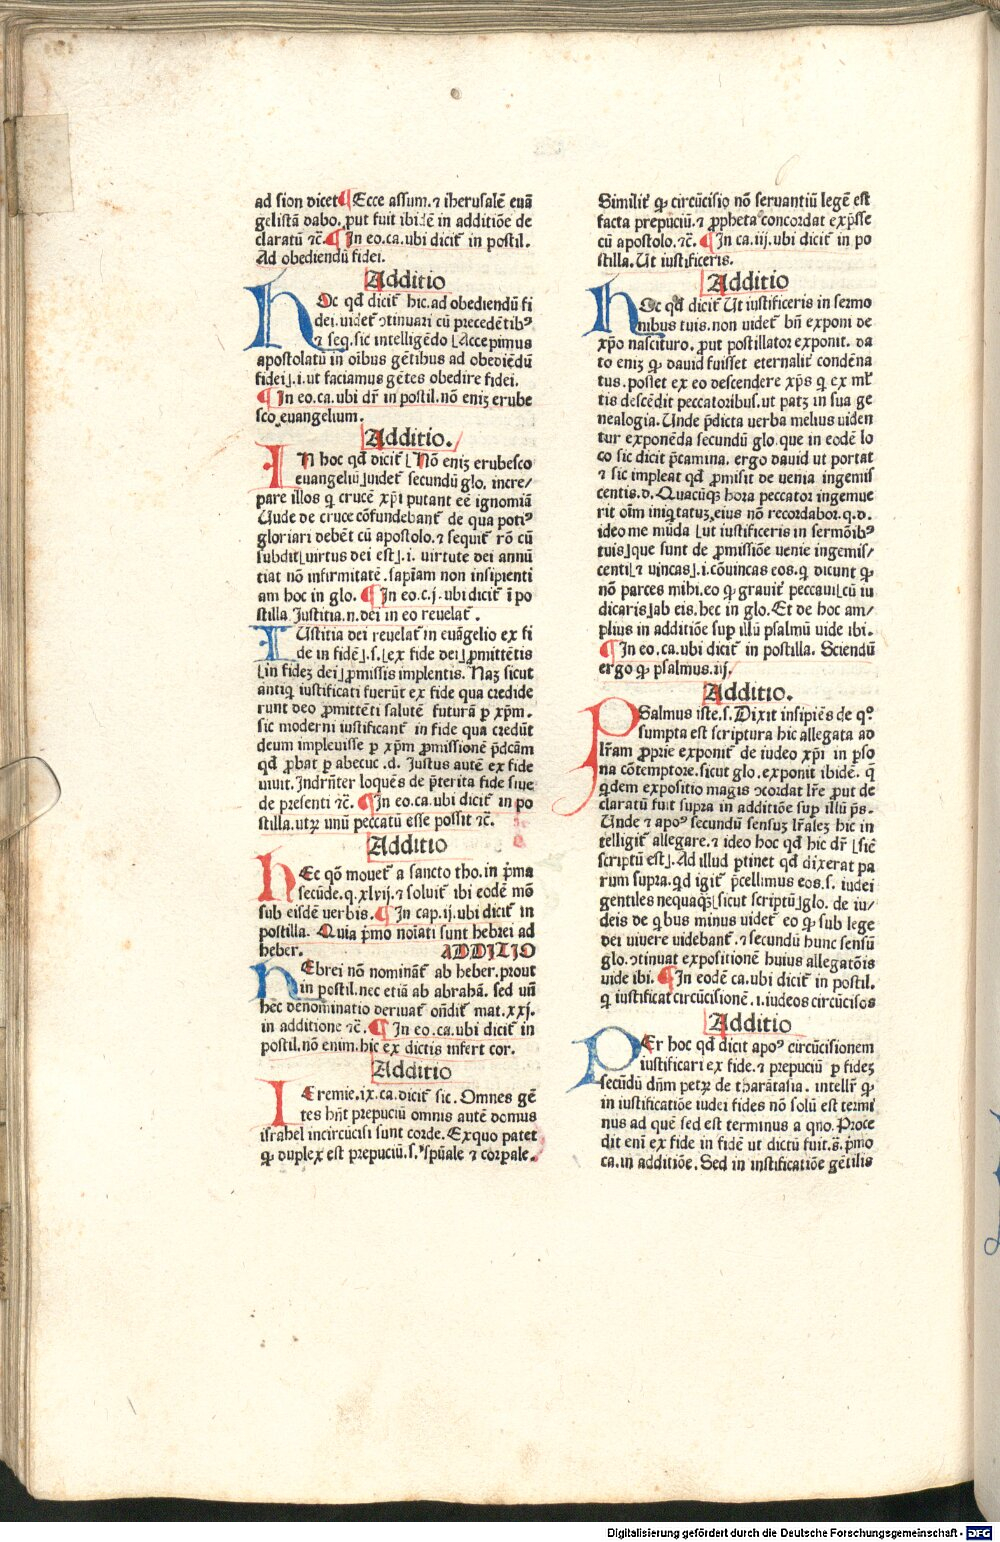 ad sion dicet ¶ Ecce assum. ⁊ iherusalē euā
gelistā dabo. put fuit ibidē in additiōe de
claratū ⁊c̄. ¶ In eo.ca.ubi dicit᷑ in postil.
Ad obediendū fidei.
Additio
HOc qd̄ dicit᷑ hic.ad obediendū fi
dei.uidet᷑ ↄtinuari cū precedētibꝰ
⁊ seq.sic intelligēdo ⌊Accepimus
apostolatū in oībus gētibus ad obediēdū
fidei⌋.i.ut faciamus gētes obedire fidei.
¶ In eo.ca.ubi dr̄ in postil.nō eniꝫ erube
sco euangelium.
Additio.
IN hoc qd̄ dicit᷑ ⌊Nō eniꝫ erubesco
euangeliū⌋uidet᷑ secundū glo. incre/
pare illos q crucē xp̄i putant eē ignomiā
Unde de cruce cōfundebant᷑ de qua potiꝰ
gloriari debēt cū apostolo.⁊ sequit᷑ rō cū
subdit⌊uirtus dei est⌋.i. uirtute dei annū
tiat nō infirmitatē.sapīam non insipienti
am hoc in glo. ¶ In eo.c.j.ubi dicit᷑ ī po
stilla Justitia.n.dei in eo reuelat᷑.
IUstitia dei reuelat᷑ in euāgelio ex fi
de in fidē⌋.s.⌊ex fide dei⌋ꝓmittētis
⌊in fideꝫ dei⌋ꝓmissis implentis. Naꝫ sicut
antiq iustificati fuerūt ex fide qua credide
runt deo ꝓmittēti salutē futurā p xp̄m.
sic moderni iustificant᷑ in fide qua credūt
deum impleuisse p xp̄m ꝓmissionē p̄dcām
qd̄ ꝓbat p abecuc.d. Justus autē ex fide
uiuit. Indrn̄ter loquēs de p̄terita fide siue
de presenti ⁊c̄. ¶ In eo.ca.ubi dicit᷑ in po
stilla.utꝝ unū peccatū esse possit ⁊c̄.
Additio
HEc qō mouet᷑ a sancto tho.in p̄ma
secūde.q.xlvij.⁊ soluit᷑ ibi eodē mō
sub eisdē uerbis. ¶ In cap.ij.ubi dicit᷑ in
postilla. Quia p̄mo noīati sunt hebrei ad
heber. ADDITIO
HEbrei nō nomināt᷑ ab heber.prout
in postil.nec etiā ab abrahā. sed un̄
hec denominatio deriuat᷑ on̄dit᷑ mat.xxj.
in additione ⁊c̄. ¶ In eo.ca.ubi dicit᷑ in
postil.nō enim.hic ex dictis infert cor.
Additio
IEremie.ix.ca.dicit᷑ sic. Omnes gē
tes hn̄t prepuciū omnis autē domus
israhel incircūcisi sunt corde. Exquo patet
ꝙ duplex est prepuciū.s.spūale ⁊ corpale.
Similit᷑ ꝙ circūcisio nō seruantiū legē est
facta prepuciū.⁊ ꝓpheta concordat exp̄sse
cū apostolo.⁊c̄. ¶ In ca.iij.ubi dicit᷑ in po
stilla. Ut iustificeris.
Additio
HOc qd̄ dicit᷑ Ut iustificeris in sermo
nibus tuis.non uidet᷑ bn̄ exponi de
xp̄o nascituro. put postillator exponit. da
to eniꝫ ꝙ dauid fuisset eternalit᷑ condēna
tus.posset ex eo descendere xp̄s q ex mr̄
tis descēdit peccatoribus.ut patꝫ in sua ge
nealogia. Unde p̄dicta uerba melius uiden
tur exponēda secundū glo.que in eodē lo
co sic dicit p̄tamina. ergo dauid ut portat
⁊ sic impleat qd̄ ꝓmisit de uenia ingemis
centis.d. Quacūqꝫ hora peccator ingemue
rit oīm iniqtatuꝫ eius nō recordabor.q.d.
ideo me mūda ⌊ut iustificeris in sermōibꝰ
tuis⌋que sunt de ꝓmissiōe uenie ingemis/
centi⌊⁊ uincas⌋.i.cōuincas eos.q dicunt ꝙ
nō parces mihi.eo ꝙ grauit᷑ peccaui⌊cū iu
dicaris⌋ab eis.hec in glo. Et de hoc am/
plius in additiōe sup illū psalmū uide ibi.
¶ In eo.ca.ubi dicit᷑ in postilla. Sciendū
ergo ꝙ psalmus.iij.
Additio.
PSalmus iste.s. Dixit insipiēs de qº
sumpta est scriptura hic allegata ad
lr̄am ꝓprie exponit᷑ de iudeo xp̄i in pso
na cōtemptore.sicut glo.exponit ibidē. q̄
qdem expositio magis ↄcordat lr̄e prout de
claratū fuit supra in additiōe sup illū ps̄.
Unde ⁊ apoꝰ secundū sensuꝫ lr̄aleꝫ hic in
telligit᷑ allegare.⁊ ideo hoc qd̄ hic dr̄ ⌊sic̄
scriptū est⌋. Ad illud ptinet qd̄ dixerat pa
rum supra.qd igit᷑ p̄cellimus eos.s. iudei
gentiles nequaqꝫ⌊sicut scriptū⌋glo. de iu/
deis de qbus minus uidet᷑ eo ꝙ sub lege
dei uiuere uidebant᷑.⁊ secundū hunc sensū
glo.ↄtinuat expositionē huius allegatōis
uide ibi. ¶ In eodē ca.ubi dicit᷑ in postil.
q iustificat circūcisionē.i.iudeos circūcisos
Additio
PEr hoc qd̄ dicit apoꝰ circūcisionem
iustificari ex fide.⁊ prepuciū p fideꝫ
secūdū dn̄m petrꝝ de tharātasia. intellr̄ ꝙ
in iustificatiōe iudei fides nō solū est termi
nus ad quē sed est terminus a qno. Proce
dit enī ex fide in fidē ut dictū fuit.s̄. p̄mo
ca.in additiōe. Sed in iustificatiōe gētilis
Digitalisierung gefördert durch die Deutsche Forschungsgemeinschaft - DFG